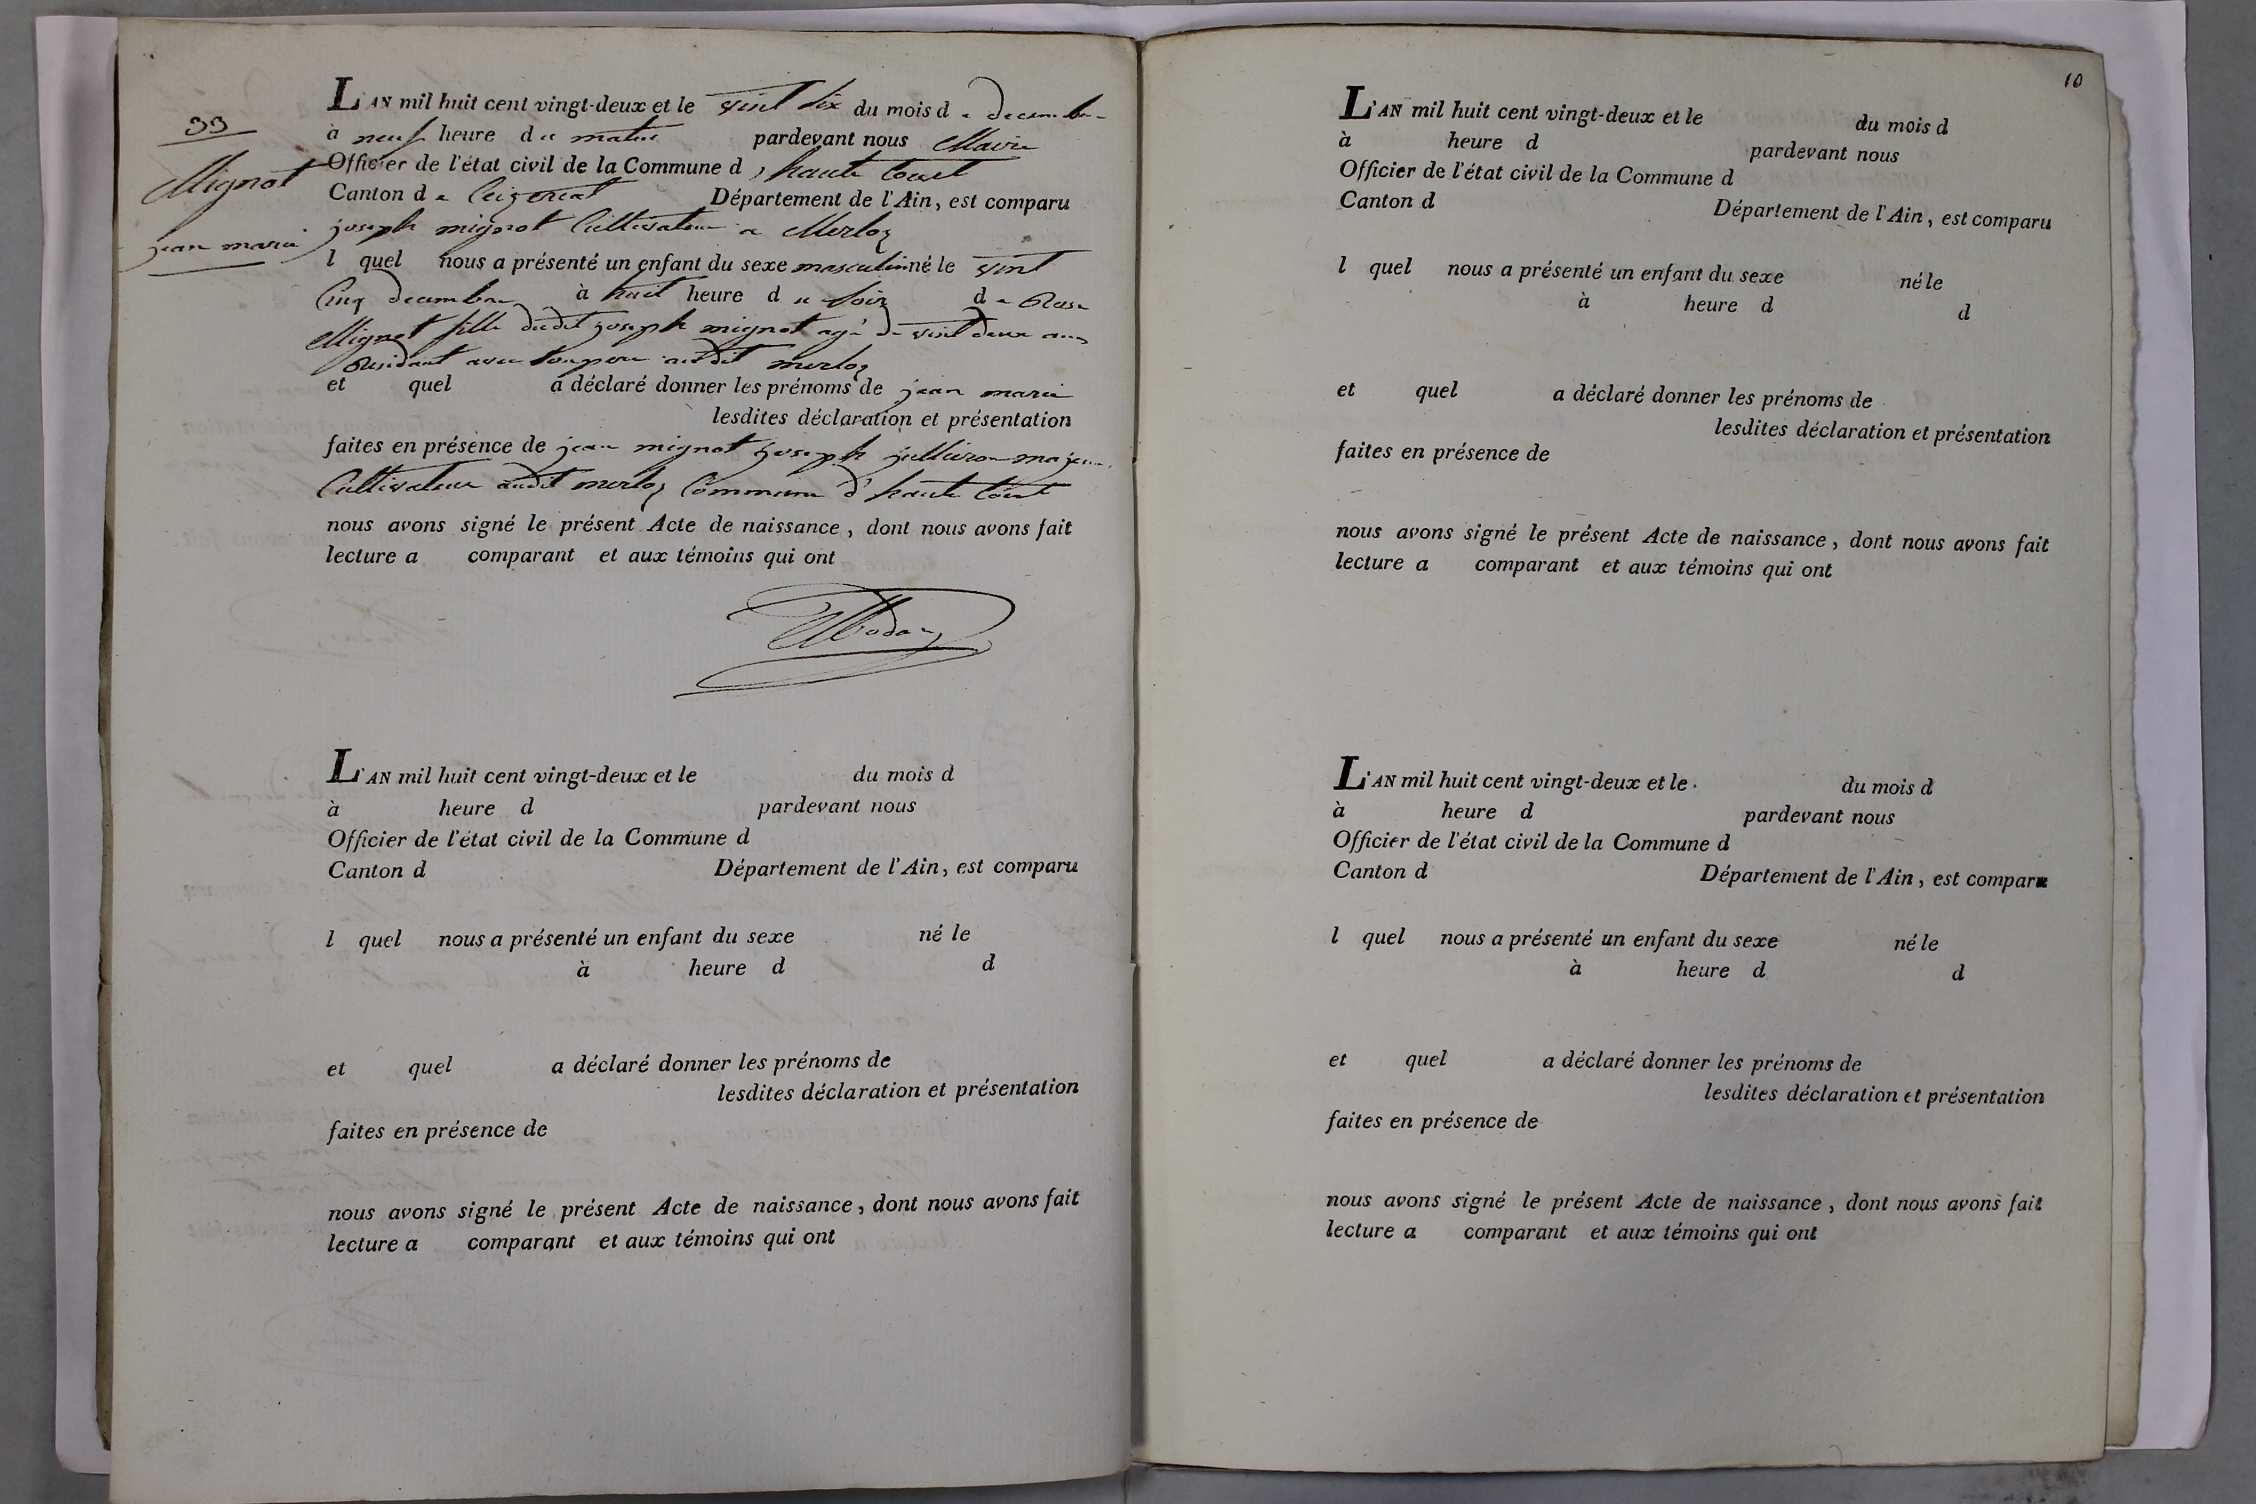 33
Mignot
jean marie
L'AN mil huit cent vingt-deux et le vint six du mois de decembre
à neuf heure du matin pardevant nous Maire
Officier de l'état civil de la Commune d haute Court
Canton de Ceizeriat Département de l'Ain, est comparu
joseph mignot Cultivateur a Merloz
l quel nous a présenté un enfant du sexe masculin né le vint
Cinq decembre à huit heure du soir de Rose
Mignot fille dudit joseph mignot agé de vint deux ans
Residant avec son pere audit merloz
et quel a déclaré donner les prénoms de jean marie
lesdites déclaration et présentation
faites en présence de jean mignot joseph majeurs
Cultivateur audit merloz Commune d'haute Court
nous avons signé le présent Acte de naissance, dont nous avons fait
lecture a comparant et aux témoins qui ont
L'AN mil huit cent vingt-deux et le du mois d
à heure d pardevant nous
Officier de l'état civil de la Commune d
Canton d Département de l'Ain, est comparu
l quel nous a présenté un enfant du sexe né le
à heure d d
et quel a déclaré donner les prénoms de
lesdites déclaration et présentation
faites en présence de
nous avons signé le présent Acte de naissance, dont nous avons fait
lecture a comparant et aux témoins qui ont
10
L'AN mil huit cent vingt-deux et le du mois d
à heure d pardevant nous
Officier de l'état civil de la Commune d
Canton d Département de l'Ain, est comparu
l quel nous a présenté un enfant du sexe né le
à heure d d
et quel a déclaré donner les prénoms de
lesdites déclaration et présentation
faites en présence de
nous avons signé le présent Acte de naissance, dont nous avons fait
lecture a comparant et aux témoins qui ont
L'AN mil huit cent vingt-deux et le du mois d
à heure d pardevant nous
Officier de l'état civil de la Commune d
Canton d Département de l'Ain, est comparu
l quel nous a présenté un enfant du sexe né le
à heure d d
et quel a déclaré donner les prénoms de
lesdites déclaration et présentation
faites en présence de
nous avons signé le présent Acte de naissance, dont nous avons fait
lecture a comparant et aux témoins qui ont